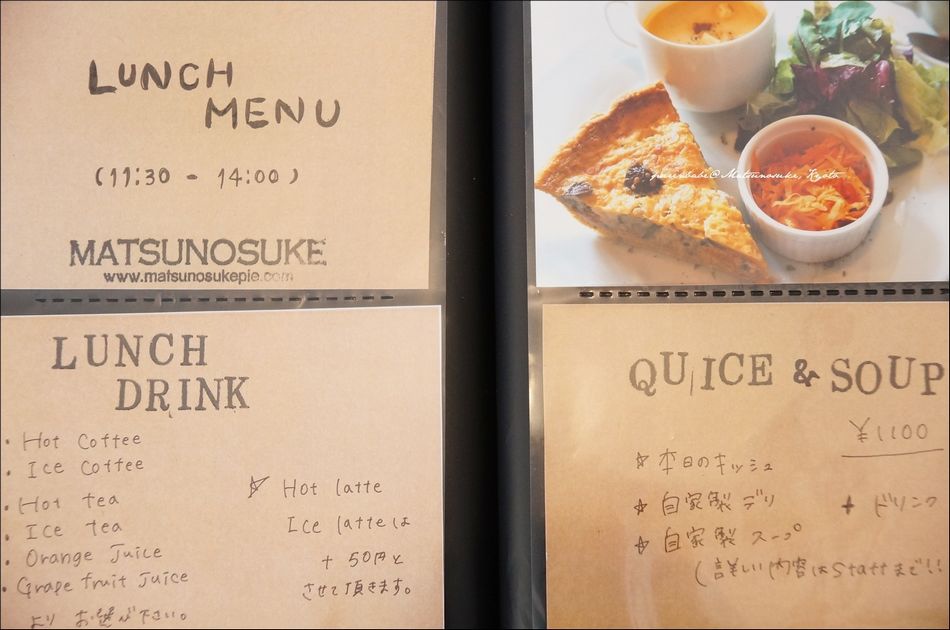 LUNCH
MENU
(11:30 - 14:00)
MATSUNOSUKE
www.matsunosukepie.com
LUNCH
DRINK
・Hot Coffee
・Ice Coffee
・Hot tea
・Ice tea
・Orange Juice
・Grape fruit Juice
より お選び下さい。
☆ Hot latte
Ice latteは
+ 50円と
させて頂きます。
purinbabe@Matsunosuke, Kyoto
QUICE & SOUP
¥1100
☆ 本日のキッシュ
☆ 自家製 デリ + ドリンク
☆ 自家製 スープ
(詳しい内容はStaffまで!!